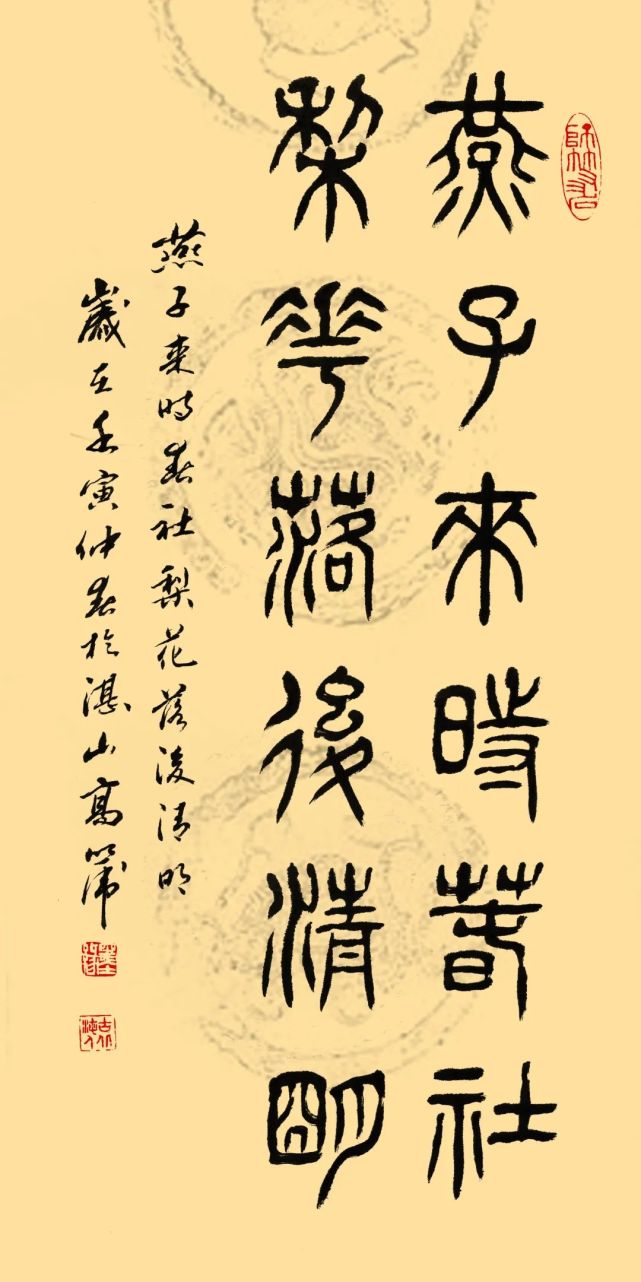 燕子來時萅社
梨花落後清朙
燕子来時春社梨花落後清明
歲在壬寅仲春於湛山高